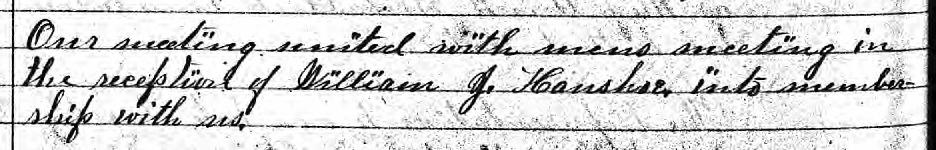 Our meeting united with mens meeting in
the reception of William J. Hanshoe, into member-
ship with us.